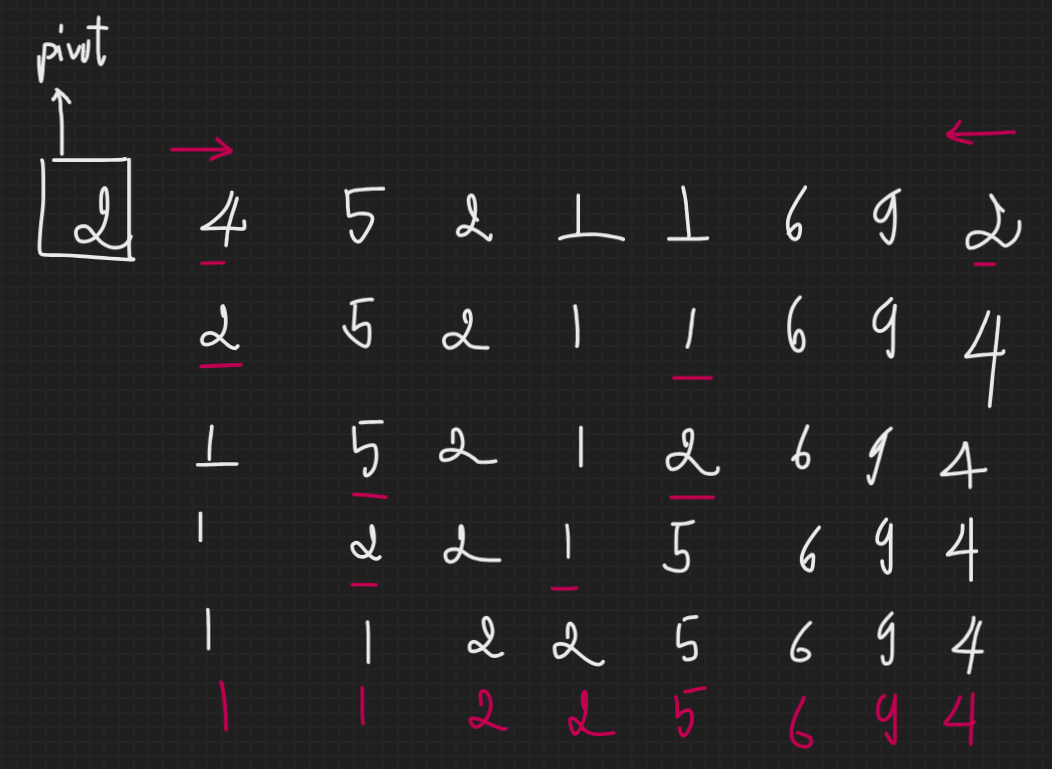 pivot
2 4 5 2 1 1 6 9 2
2 5 2 1 1 6 9 4
1 5 2 1 2 6 9 4
1 2 2 1 5 6 9 4
1 1 2 2 5 6 9 4
1 1 2 2 5 6 9 4